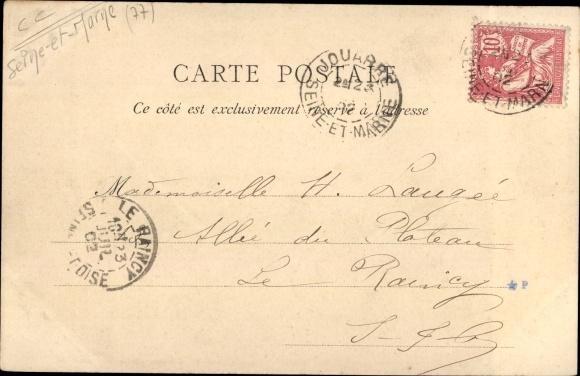 CC
Seine-et-Marne (77)
10
CARTE POSTALE
Ce côté est exclusivement réservé à l'adresse
JOUARRE
23
02
SEINE-ET-MARNE
SEINE-ET-MARNE
Mademoiselle H. Laugée
Allée du Plateau
Le Raincy
S-&-O
LE RAINCY
23
JUIL
02
S-ET-OISE
P